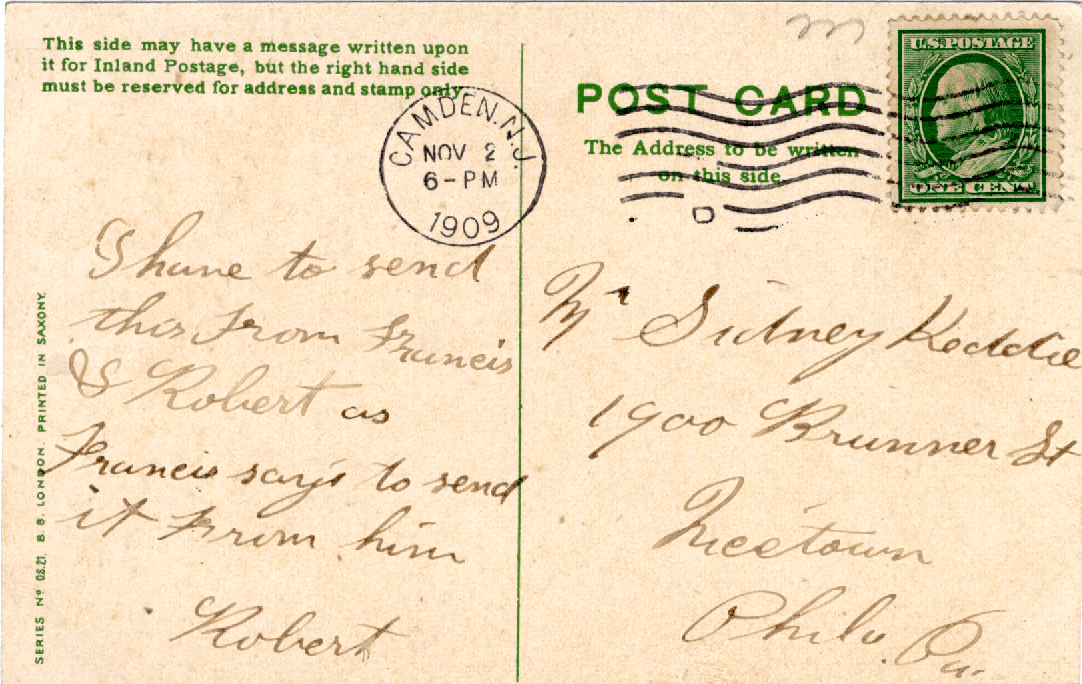 This side may have a message written upon
it for Inland Postage, but the right hand side
must be reserved for address and stamp only.
CAMDEN, N.J.
NOV 2
6-PM
1909
POST CARD
The Address to be written
on this side.
U.S. POSTAGE
ONE CENT
I have to send
this from Francis
& Robert as
Francis say's to send
it from him
Robert
Mr Sidney Keddie
1900 Brunner St
Nicetown
Phila. Pa.
SERIES Nº OS.21. B. B. LONDON. PRINTED IN SAXONY.